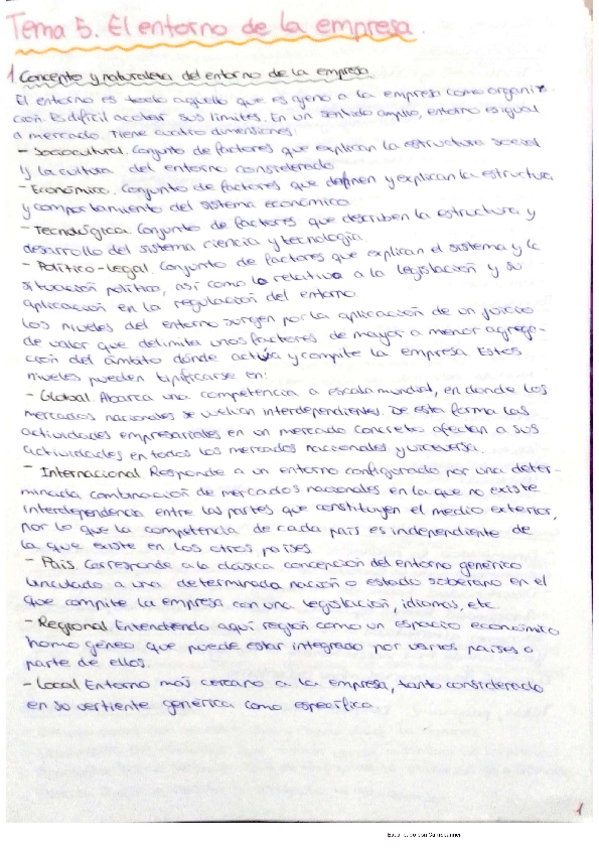 Tema 5. El entorno de la empresa.
1 Concepto y naturaleza del entorno de la empresa
El entorno es todo aquello que es ajeno a la empresa como organiza-
ción. Es difícil acotar sus límites. En un sentido amplio, entorno es igual
a mercado. Tiene cuatro dimensiones:
- Sociocultural. Conjunto de factores que explican la estructura social
y la cultura del entorno considerado
- Económico. Conjunto de factores que definen y explican la estructura
y comportamiento del sistema económico
- Tecnológica. Conjunto de factores que describen la estructura y
desarrollo del sistema ciencia y tecnología.
- Político-legal. Conjunto de factores que explican el sistema y la
situación político, así como lo relativo a la legislación y su
aplicación en la regulación del entorno.
Los niveles del entorno surgen por la aplicación de un juicio
de valor que delimita unos factores de mayor a menor agrega-
ción del ámbito donde actúa y compite la empresa. Estos
niveles pueden tipificarse en:
- Global. Abarca una competencia a escala mundial, en donde los
mercados nacionales se vuelven interdependientes. De esta forma las
actividades empresariales en un mercado concreto afectan a sus
actividades en todos los mercados nacionales y viceversa.
- Internacional. Responde a un entorno configurado por una deter-
minada combinación de mercados nacionales en la que no existe
interdependencia entre las partes que constituyen el medio exterior,
por lo que la competencia de cada país es independiente de
la que existe en los otros países.
- País. Corresponde a la clásica concepción del entorno genérico
vinculado a una determinada nación o estado soberano en el
que compite la empresa con una legislación, idiomas, etc
- Regional. Entendiendo aquí región como un espacio económico
homogéneo que puede estar integrado por varios países o
parte de ellos.
- Local. Entorno más cercano a la empresa, tanto considerado
en su vertiente genérica como específica.
1